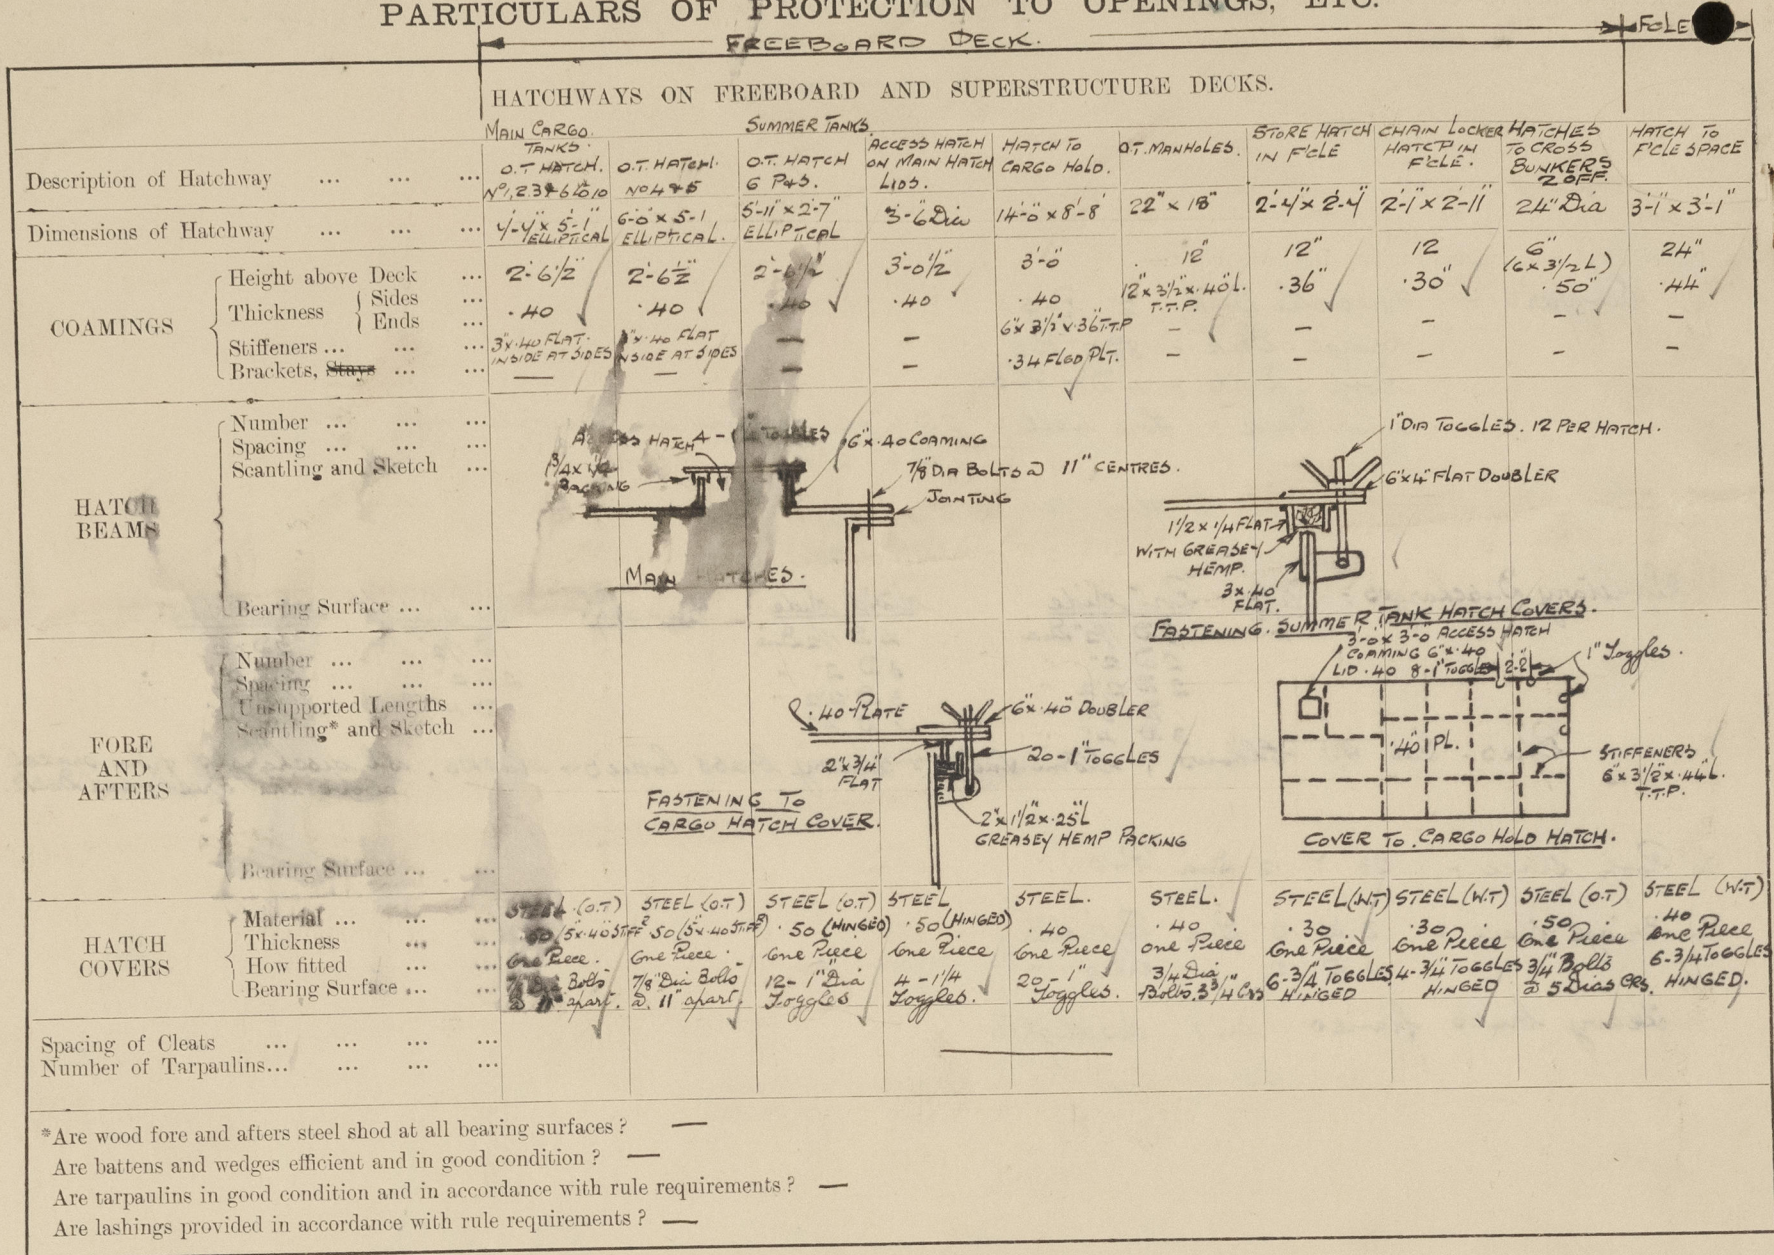 PARTICULARS OF PROTECTION TO OPENINGS, ETC.
FREEBOARD DECK.
HATCHWAYS ON FREEBOARD AND SUPERSTRUCTURE DECKS.
MAIN CARGO TANKS. SUMMER TANKS.
Description of Hatchway ... ... ...
O.T. HATCH.
O.T. HATCH. No 4 & 5
O.T. HATCH 6 P&S.
ACCESS HATCH ON MAIN HATCH LIDS.
HATCH TO CARGO HOLD.
O.T. MANHOLES.
STORE HATCH IN F'CLE
CHAIN LOCKER HATCH IN F'CLE.
HATCHES TO CROSS BUNKERS 2 OFF.
HATCH TO F'CLE SPACE
Dimensions of Hatchway ... ... ...
4'-4" x 5'-1" ELLIPTICAL
6-0" x 5-1 ELLIPTICAL.
5'-11" x 2'-7" ELLIPTICAL
3'-6 Dia
14'-0" x 8'-8"
22" x 18"
2'-4" x 2'-4"
2'-1" x 2'-11"
24" Dia
3'-1" x 3'-1"
COAMINGS
Height above Deck ... 2'-6½" 2'-6½" 2'-6½" 3'-0½" 3'-0" 12" 12" 12 6" 24"
(6 x 3½ L)
Thickness { Sides ... .40 .40 .40 .40 .40 12" x 3½" x .40 L. T.T.P. .36" .30" .50" .44"
Ends ...
Stiffeners ... ... ... 3" x .40 FLAT INSIDE AT SIDES 3" x .40 FLAT INSIDE AT SIDES — — 6" x 3½" x .36 T.T.P — — — — —
Brackets, Stays ... ... — — — — .34 FLGD PLT. — — — — —
HATCH BEAMS
Number ... ... ...
Spacing ... ... ...
Scantling and Sketch ...
Bearing Surface ... ...
ACCESS HATCH
TOGGLES
6" x .40 COAMING
7/8" DIA BOLTS @ 11" CENTRES.
JOINTING
MAIN HATCHES.
1" DIA TOGGLES. 12 PER HATCH.
6" x 4" FLAT DOUBLER
1½ x ¼ FLAT WITH GREASEY HEMP.
3 x .40 FLAT.
FASTENING. SUMMER TANK HATCH COVERS.
FORE AND AFTERS
Number ... ... ...
Spacing ... ... ...
Unsupported Lengths ...
Scantling* and Sketch ...
Bearing Surface ... ...
.40 PLATE
6" x .40" DOUBLER
20 - 1" TOGGLES
2" x ¾" FLAT
2" x 1½" x .25" L
GREASEY HEMP PACKING
FASTENING TO
CARGO HATCH COVER.
3'-0 x 3'-0 ACCESS HATCH
COAMING 6" x .40
LID .40 8-1" TOGGLES
2'-2"
1" Toggles.
.40" PL.
STIFFENERS
6" x 3½" x .44" L.
T.T.P.
COVER TO CARGO HOLD HATCH.
HATCH COVERS
Material ... ... ... STEEL (O.T) STEEL (O.T) STEEL (O.T) STEEL STEEL. STEEL. STEEL (W.T) STEEL (W.T) STEEL (O.T) STEEL (W.T)
Thickness ... ... .50 (5" x .40 STIFFR .50 (5" x .40 STIFFR) .50 (HINGED) .50 (HINGED) .40 .40 .30 .30 .50 .40
How fitted ... ... One Piece. One Piece. One Piece One Piece One Piece one Piece One Piece One Piece One Piece One Piece
Bearing Surface ... ...
7/8" Dia Bolts @ 11" apart.
7/8" Dia Bolts @ 11" apart.
12 - 1" Dia Toggles
4 - 1¼ Toggles.
20 - 1" Toggles.
3/4 Dia Bolts. 3¾" Crs
6-3/4" TOGGLES HINGED
4-3/4" TOGGLES HINGED
3/4" Bolts @ 5 Dias CRS.
6-3/4 TOGGLES HINGED.
Spacing of Cleats ... ... ... ...
Number of Tarpaulins... ... ... ... —
*Are wood fore and afters steel shod at all bearing surfaces ? —
Are battens and wedges efficient and in good condition ? —
Are tarpaulins in good condition and in accordance with rule requirements ? —
Are lashings provided in accordance with rule requirements ? —